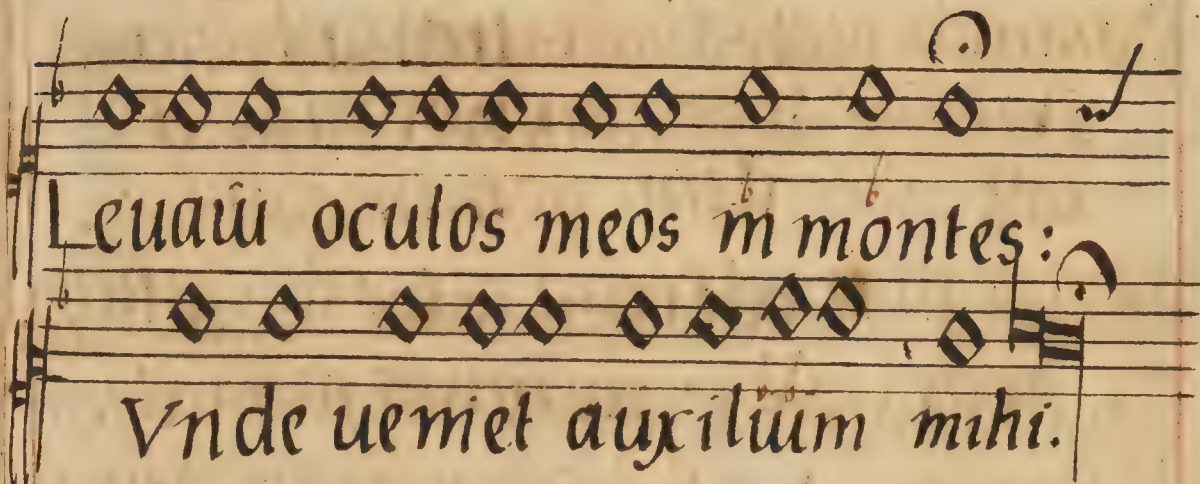 Leuaui oculos meos in montes:
Vnde ueniet auxilium mihi.